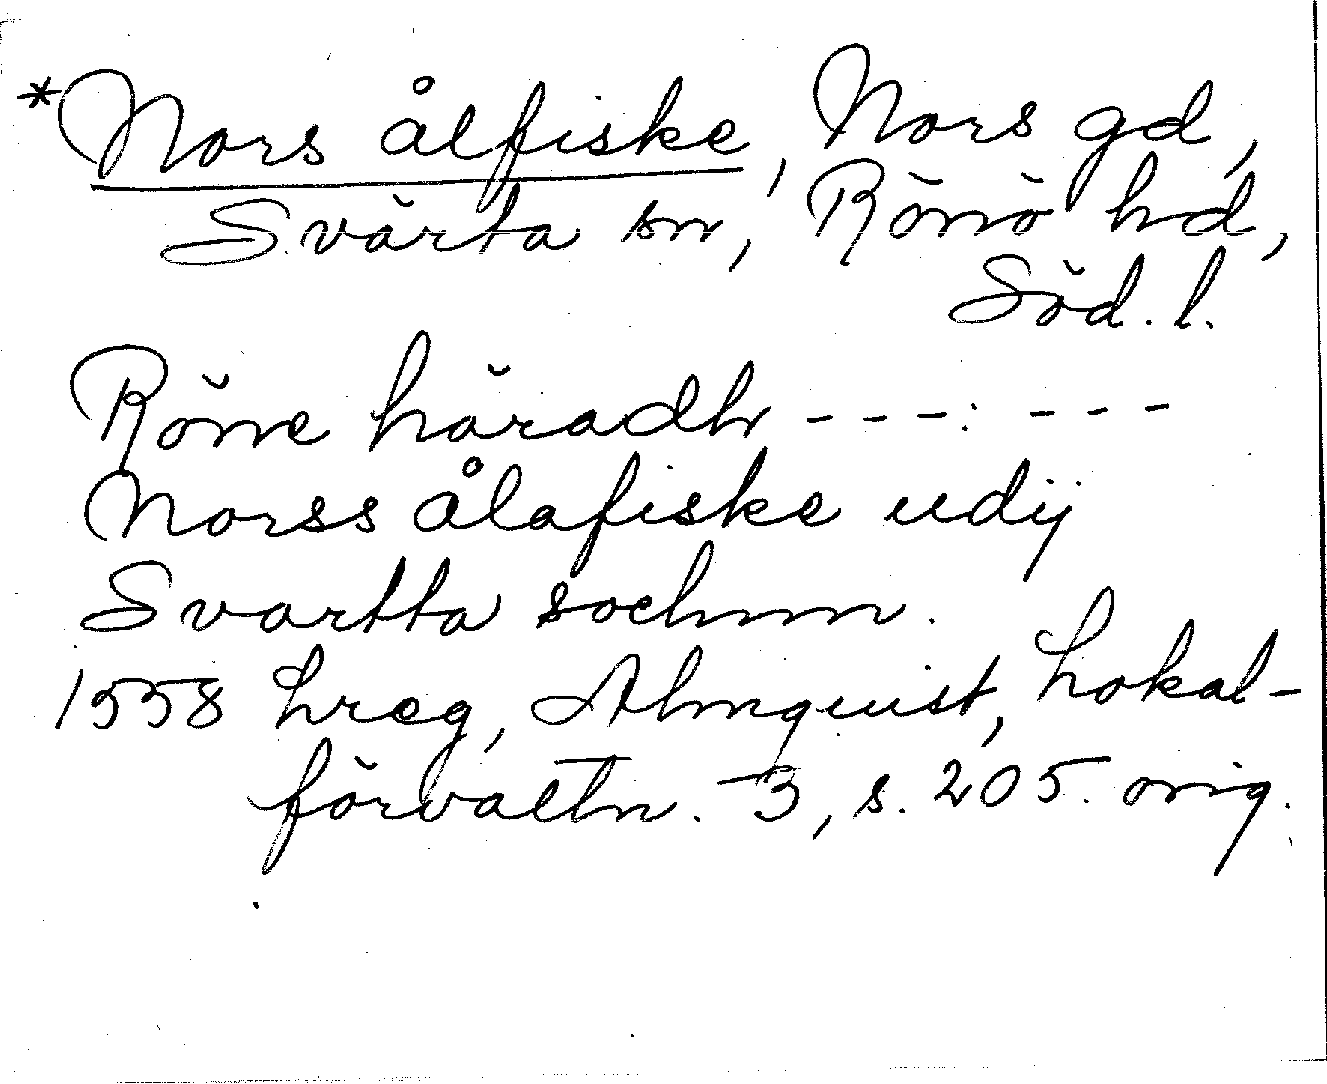 *Nors ålfiske, Nors gd,
Svärta sn, Rönö hd,
Söd. l.
Röne häradh - - - : - - -
Norss ålafiske udij
Svartta sochnn.
1558 hreg, Almquist, Lokal-
förvaltn. 3, s. 205. orig.